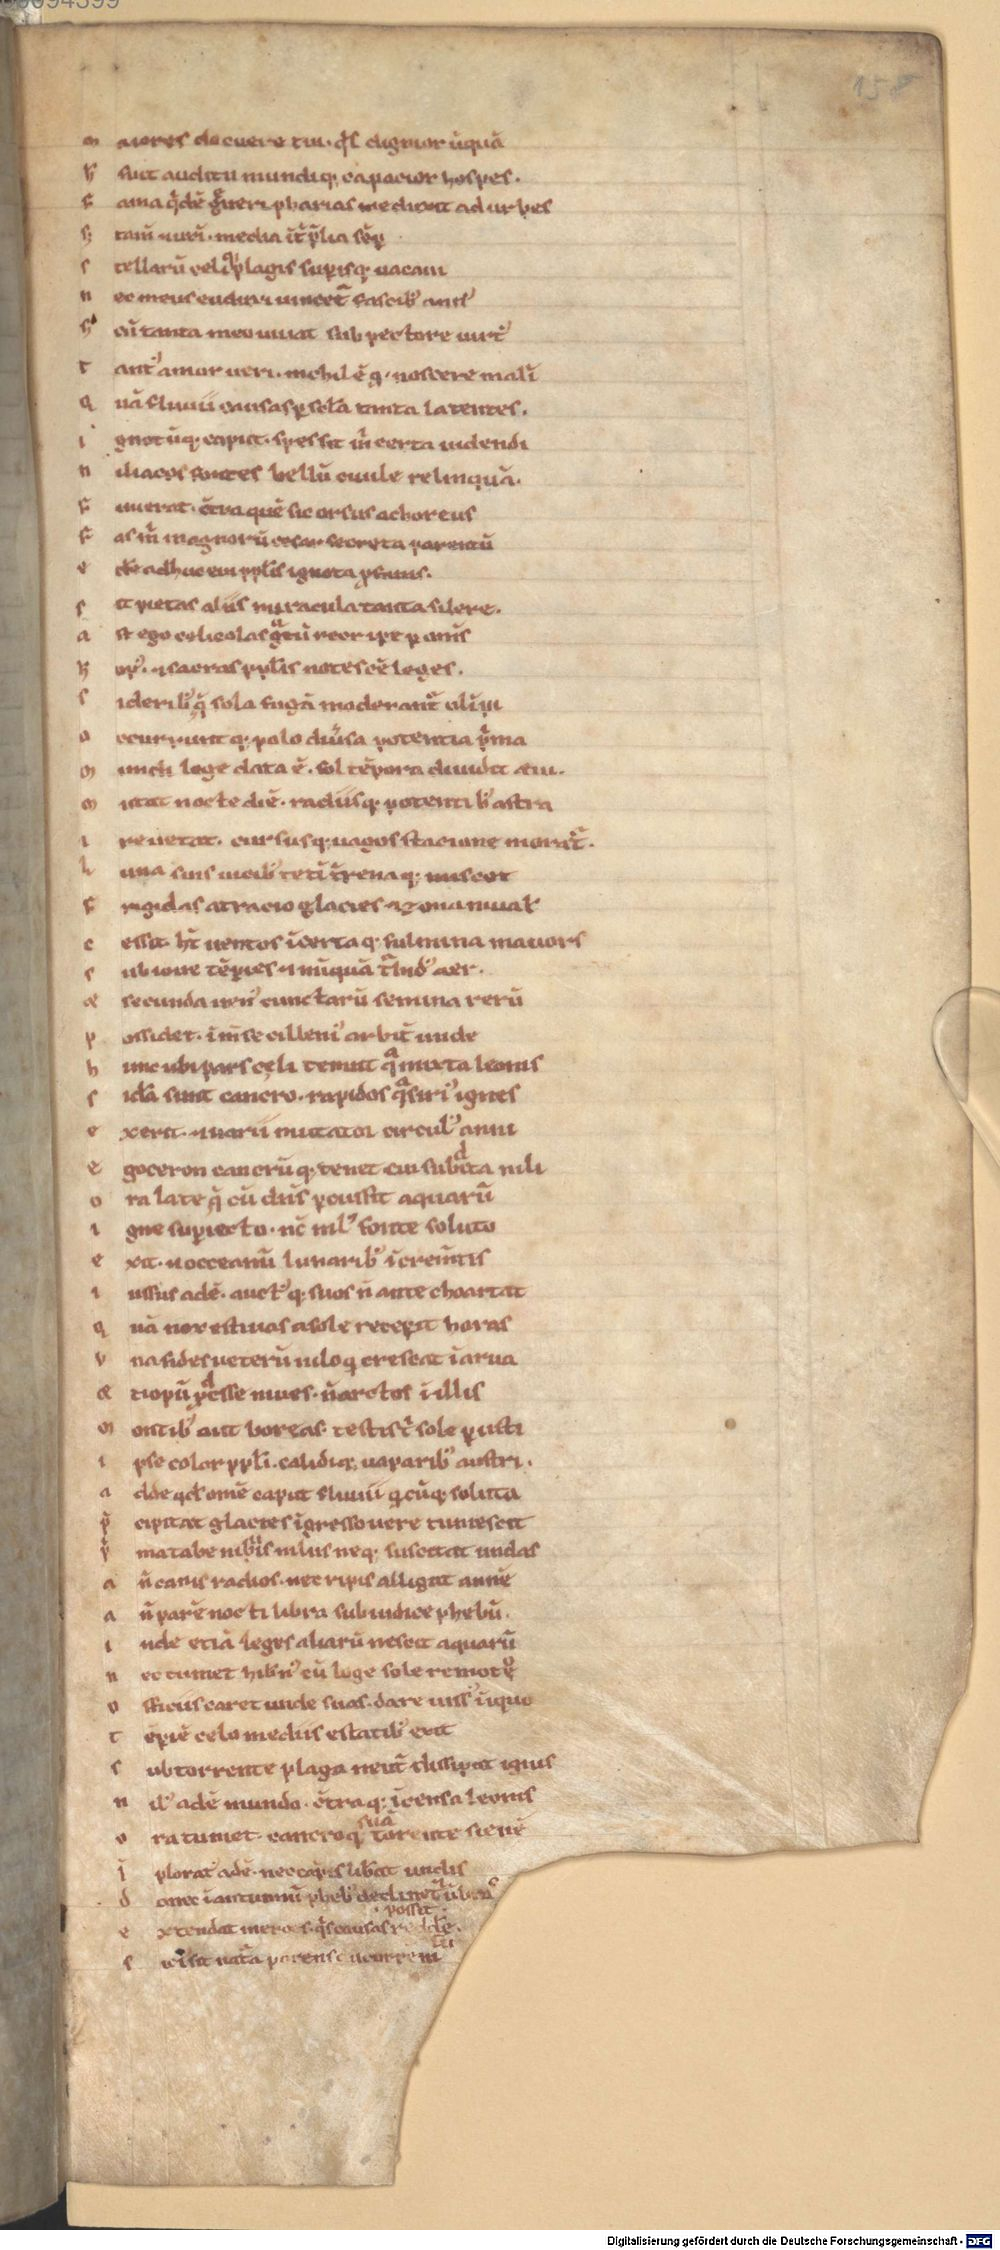 158
m aiores docuere tui. qͥs dignior ūquā
h̄ fuit auditu mundiq; capacior hospes.
f ama qͥdē gͣneri pharias me duxit ad urbes
s; tam̄ uiri. media īt p̄lia sēp
s tellarū celiqͣ plagis supisq; uacaui
n ec meus eudoxi uincet̄ fascib; ann᾽
s; cū tanta meo uiuat sub pectore uirt᾽
t ant᾽ amor ueri. nichil ē q. noscere mali
q uā fluuii causas p scl̄a tanta latentes.
i gnotūq; caput. spes sit m̄ certa uidendi
n iliacos fontes bellū ciuile relinquā.
f inierat. ētra quē sic orsus achoreus
f as m̄ magnorū cesar secreta parentū
e de adhuc eui ppl̄is ignota pfanis.
s it pietas aliis miracula tanta silere.
a st ego celicolas gͣtū reor ire p om̄s
h op᾽. sacras ppl̄is notescē leges.
s iderib; q̄ sola fugā moderant̄ olim
o ccurruntq; polo diūsa potentia pͥma
m undi lege data ē. sol tēpora diuidit eui.
m utat nocte diē. radiisq; potentib; astra
i re uetat. cursusq; uagos statione morat̄.
l una suis uicib; teti t̄renaq; miscet
f rigidas atracio glacies zona niual᾽
c essit. hͭ uentos īcertaq; fulmina mauors
s ub ioue tēpies nūquā tͥbid᾽ aer.
æ secunda uen᾽ cunctarū semina rerū
p ossidet. īm̄se cilleni᾽ arbit̄ unde
h unc ubi pars cęli tenuit qͣ mixta leonis
s ida sunt cancro. rapidos qͣ siri᾽ ignes
e xerit. uarii mutator circul᾽ anni
e goceron cancrūq; tenet cui subdita nili
o ra late q̄ cū dn̄s pcussit aquarū
i gne supiecto. nc̄ nil᾽ fonte soluto
e xit. ut occeanū lunarib; īcrem̄tis
i ussus adē. auct᾽q; suos n̄ ante choartat
q uā nox estiuas a sole recepit horas
v na fides ueterū niloq crescat ī arua
æ tiopū pdesse niues. n̄ arctos ī illis
m ontib; aut boreas. testis t̄ sole pusti
i pse color ppl̄i. calidiq; uaporib; austri.
a dde qd̄ omē caput fluuii qcūq; soluta
p̄ cipitat glacies īgresso uere tumescit
pͥ ma tabe nil᾽ neq; suscitat undas
a n̄ canis radios. nec ripis alligat annē
a n̄ parē nocti libra sub iudice phebū.
i nde etiā leges aliarū nescit aquarū
n ec tumet hibn᾽ cū loge sole remoto
o fficiis caret unde suas. dare iuss᾽ īiquo
t ēpiē celo mediis estatib; exit
s ub torrente plaga neu t̄ dissipet ignis
n il᾽ adē mundo. ētraq; īcensa leonis
o ra tumet. cancroq suā torente sienē
ī plorat᾽ adē. nec capis libat undis
d onec ī autumnū pheb᾽ declinet
e xtendat meroes. qͥs causas reddē posset.
s ic iussit nat̄a parens
Digitalisierung gefördert durch die Deutsche Forschungsgemeinschaft - DFG